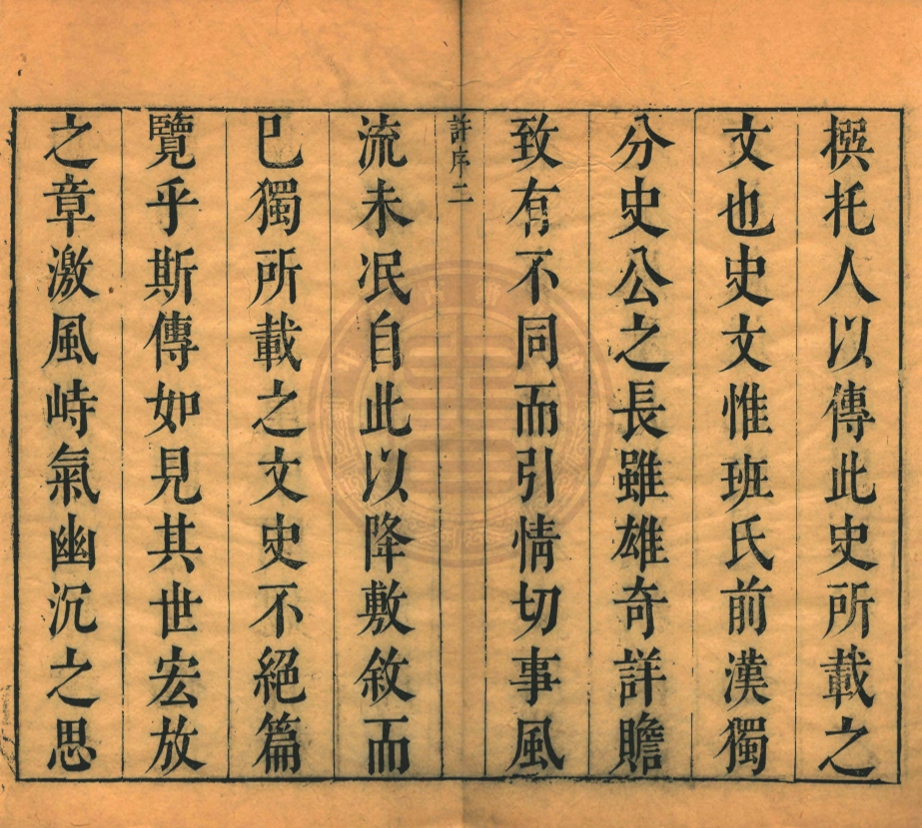 撰托人以傳此史所載之
文也史文惟班氏前漢獨
分史公之長雖雄奇詳贍
致有不同而引情切事風
許序二
流未冺自此以降敷敘而
巳獨所載之文史不絕篇
覽乎斯傳如見其世宏放
之章激風峙氣幽沉之思